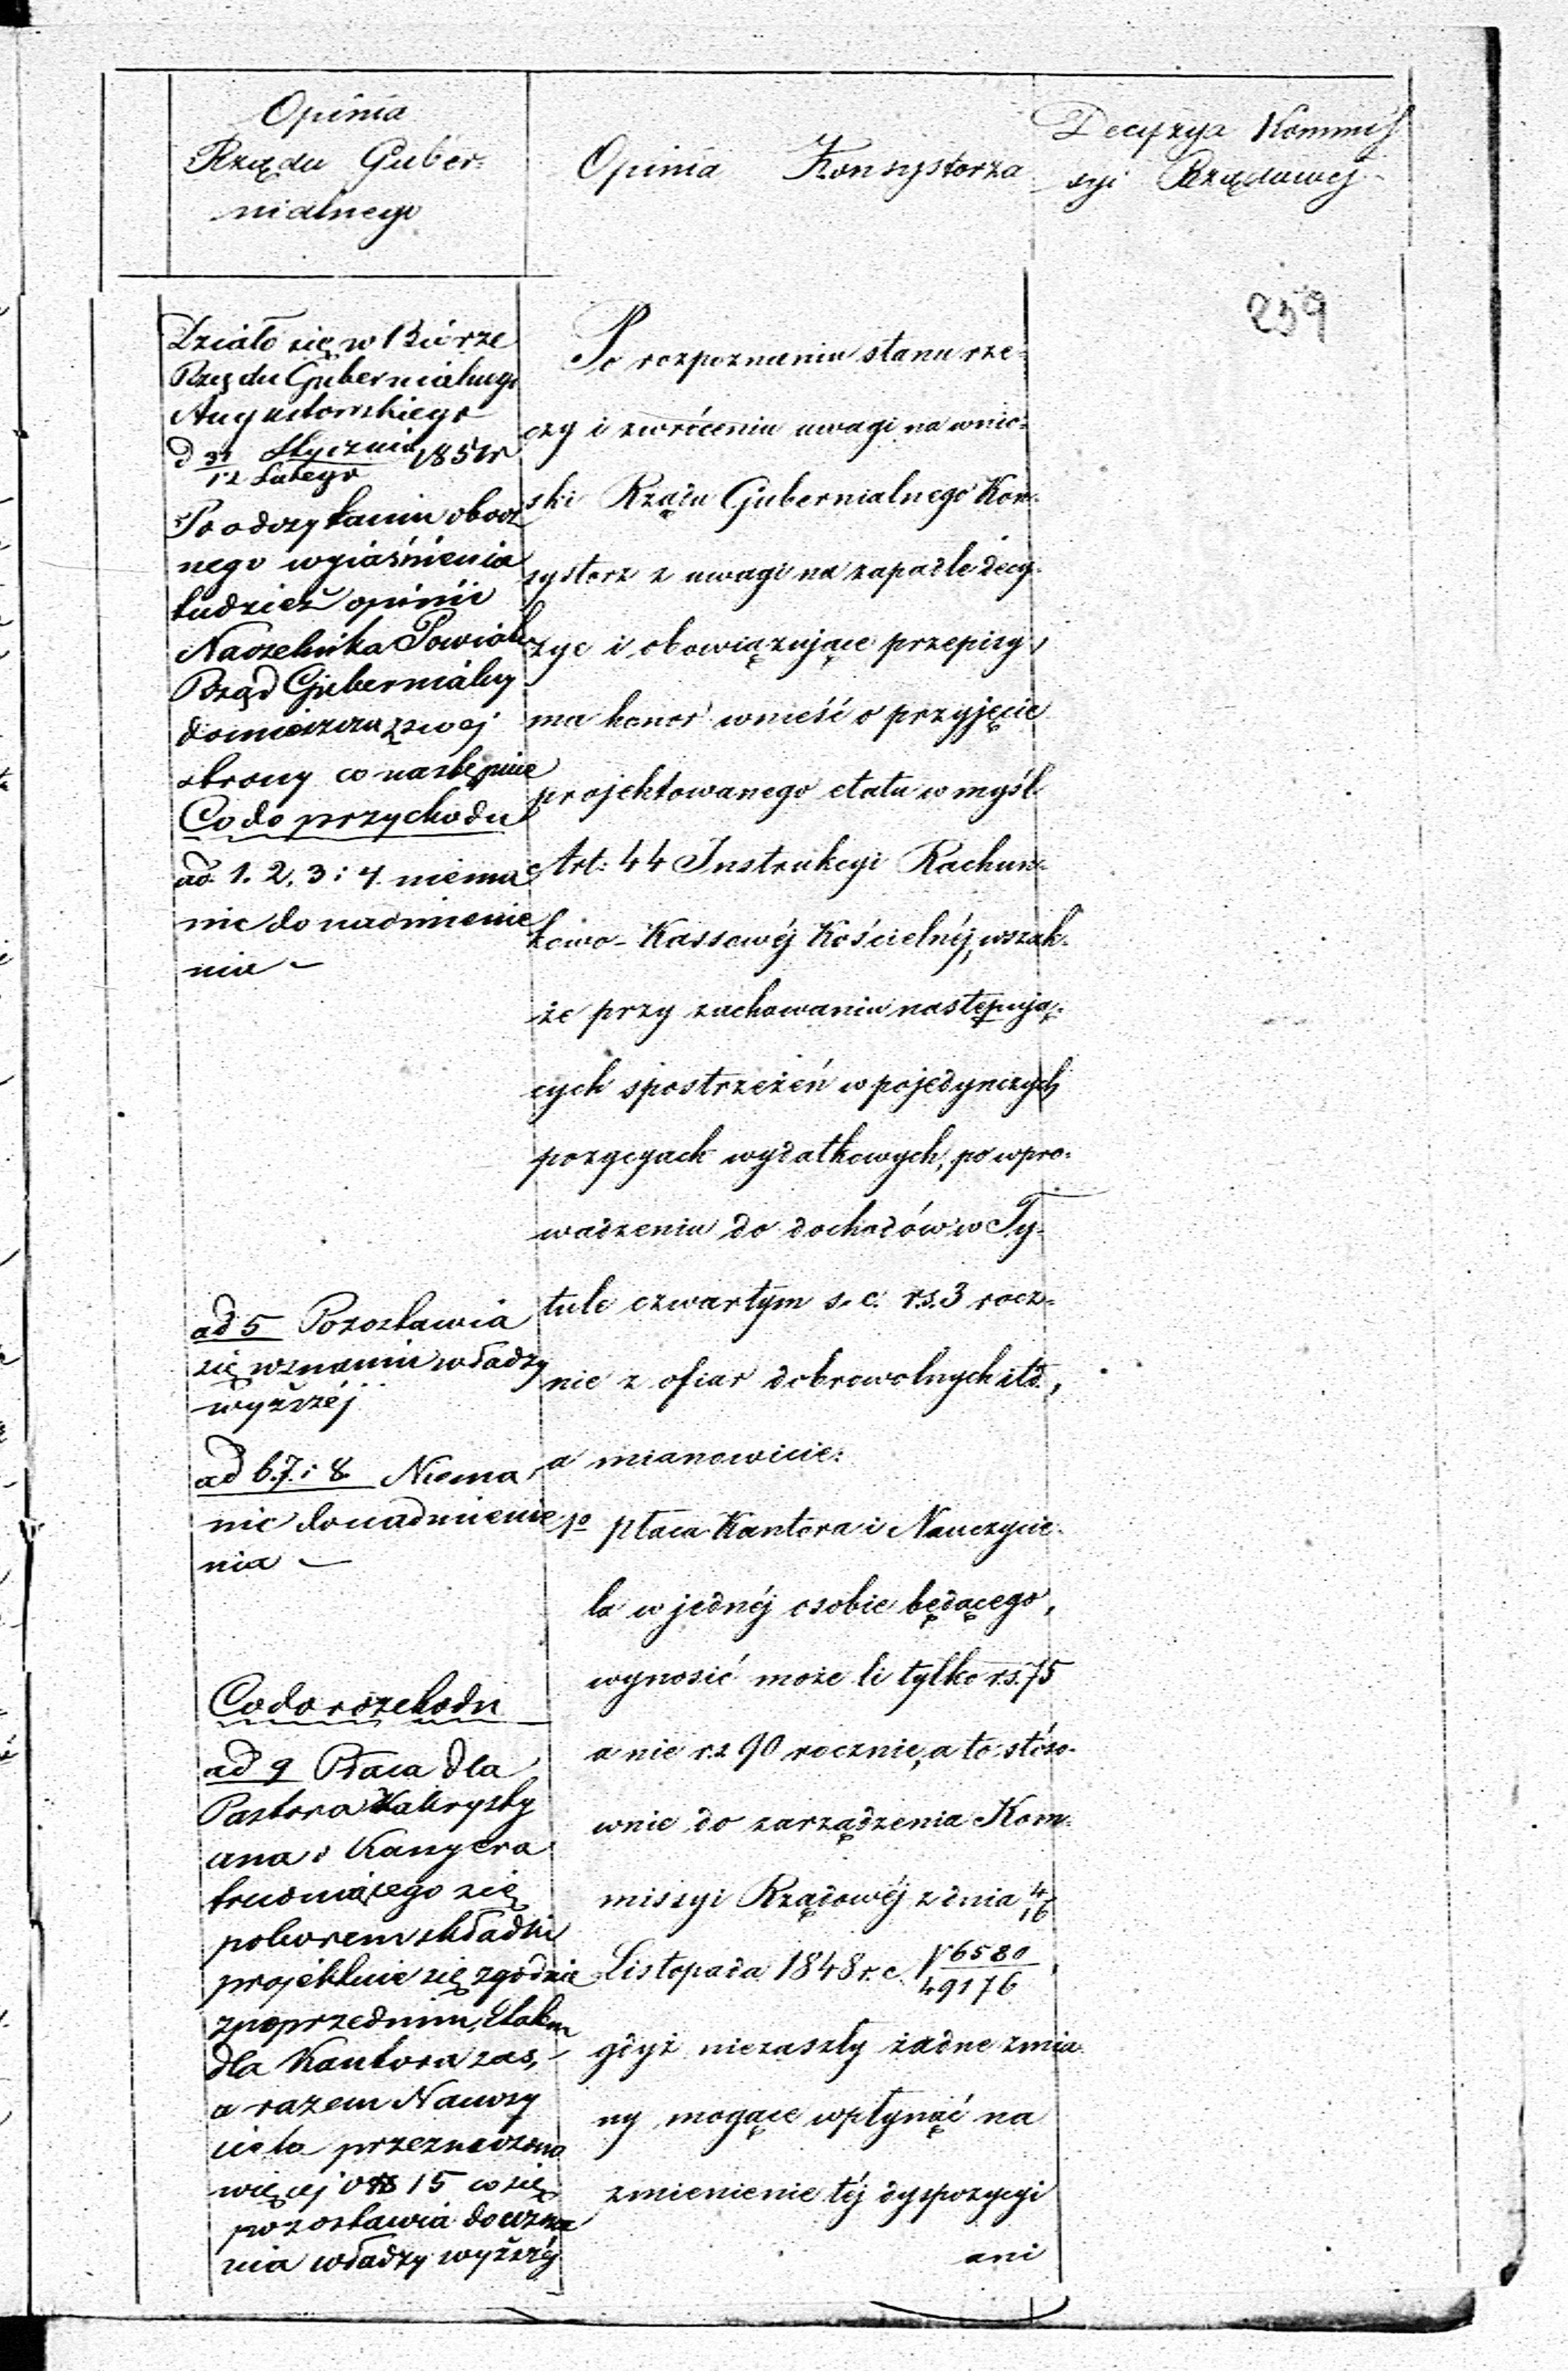 Opinia
Rządu Guber-
nialnego
Opinia Konsystorza
Decyzya Kommis
syi Rządowej
259
Działo się w Biórze
Rządu Gubernialnego
Augustowskiego
d 31 Stycznia 185 r
12 Lutego
Po odczytaniu obocz
nego wyjaśnienia
tudzież opinii
Naczelnika Powiatu
Rząd Gubernialny
zswej
strony co następuie
Co do przychodu
ad. 1. 2. 3 i 4. niema
nic do nadmienie
nia –
ad 5 Pozostawia
się uznaniu władzy
wyższéj
ad 6. 7. i 8. Niema
nic do nadmienie
nia –
Co do rozchodu
ad 9 Płaca dla
Pastora Zakrysty
ana i
trudniącego się
poborem składki
projektuie się zgodnie
z poprzednim Etatem
dla Kantora zaś,
a razem Nauczy
ciela przeznaczono
więcej o rs 15 co się
pozostawia do uzna
nia władzy wyższéj
Po rozpoznaniu stanu rze-
czy i zwróceniu uwagi na wnio-
ski Rządu Gubernialnego Kon-
systorz z uwagi na zapadłe decy-
zye i obowiązujące przepisy,
ma honor wnieść o przyjęcie
projektowanego etatu w myśl
Art: 44 Instrukcyi Rachun-
kowo-Kassowéj Kościelnéj, wszak-
że przy zachowaniu następują-
cych spostrzeżeń w pojedynczych
pozycyach wydatkowych, po wpro-
wadzeniu do dochodów w Ty-
tule czwartym s. c. r.s. 3 rocz-
nie z ofiar dobrowolnych itd.,
a mianowicie:
1o płaca Kantora i Nauczycie-
la w jednéj osobie będącego,
wynosić może li tylko r.s. 75
a nie r.s 90 rocznie, a to stóso-
wnie do zarządzenia Kom-
missyi Rządowéj z dnia 4/16
Listopada 1848 r. c. 6580
49176,
gdyż niezaszły żadne zmia-
ny mogące wpłynąć na
zmienienie téj dyspozycyi
ani